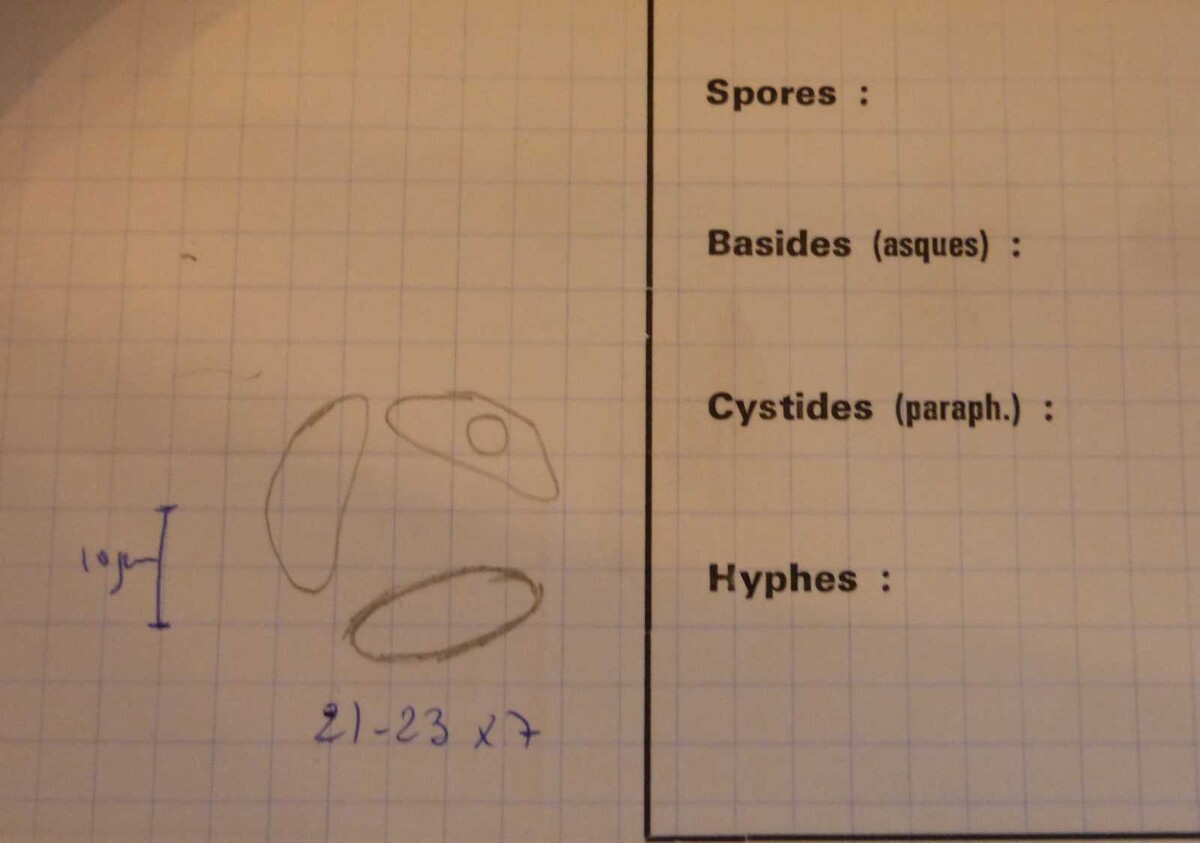 Spores :
Basides (asques) :
Cystides (paraph.) :
Hyphes :
10µ
21-23 x 7